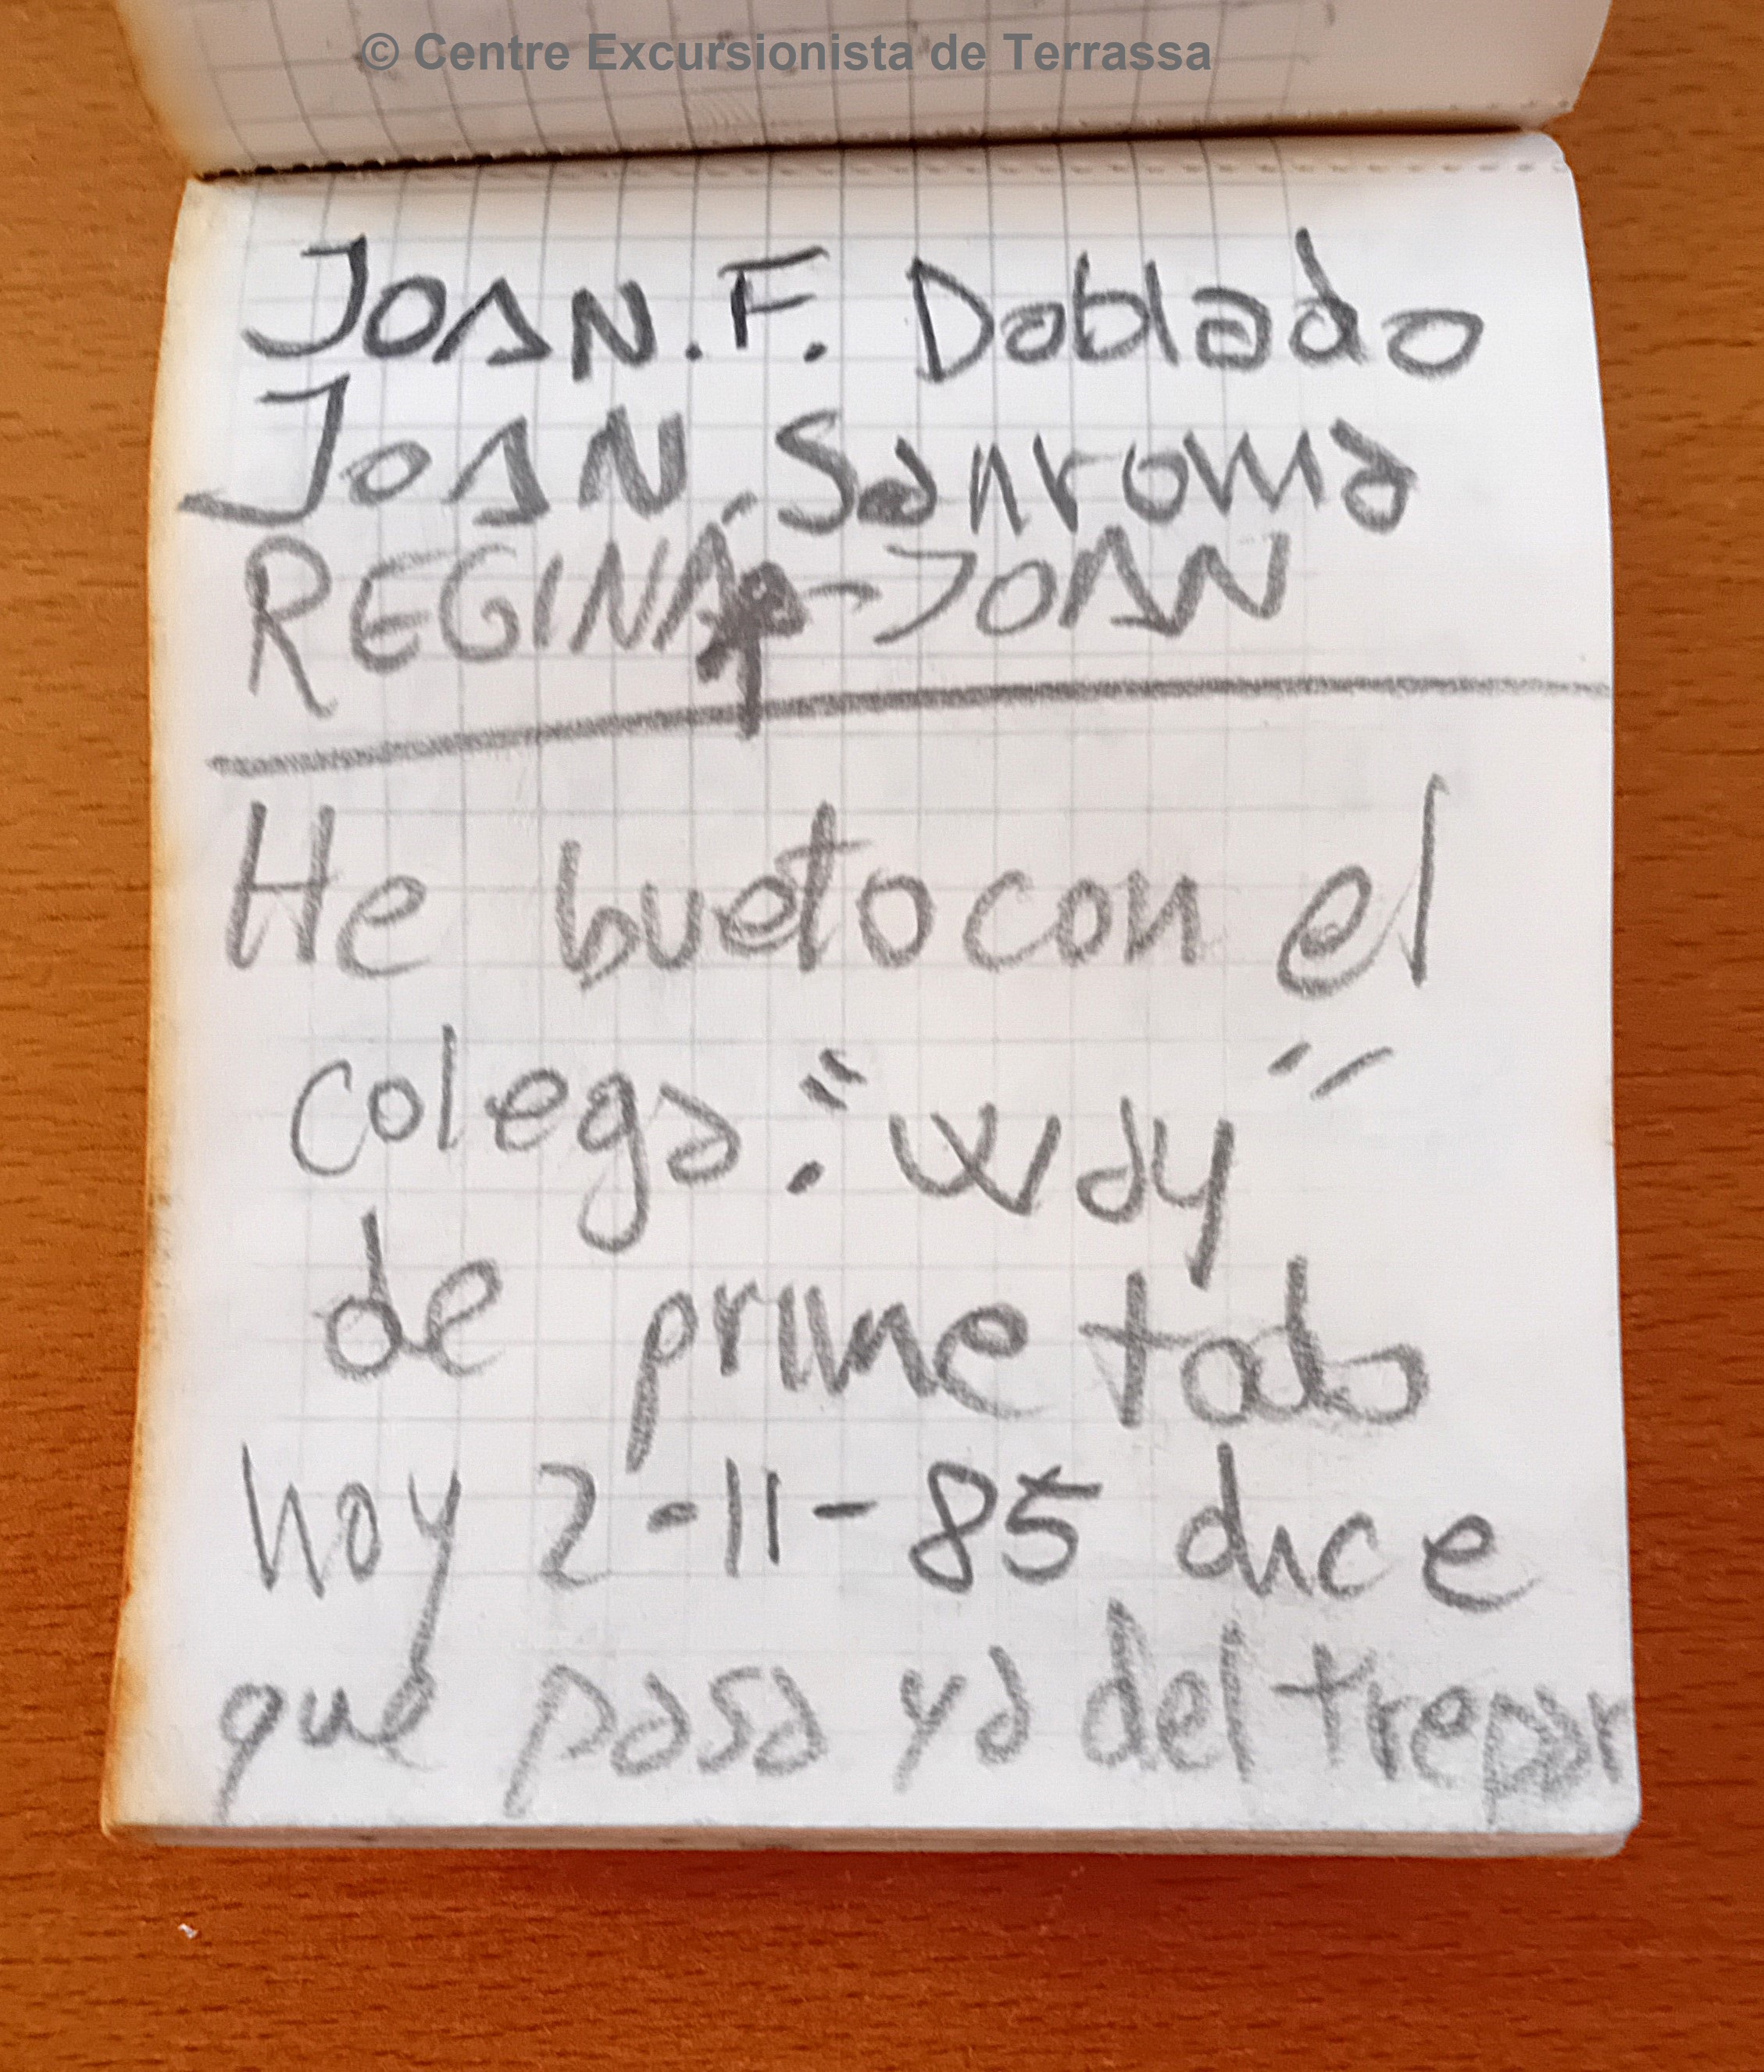 © Centre Excursionista de Terrassa
JOAN. F. Doblado
JOAN. Sanroma
REGINA - JOAN
He bueto con el
colega: "Way"
de prime todo
hoy 2-11-85 dice
que pasa ya del trepar